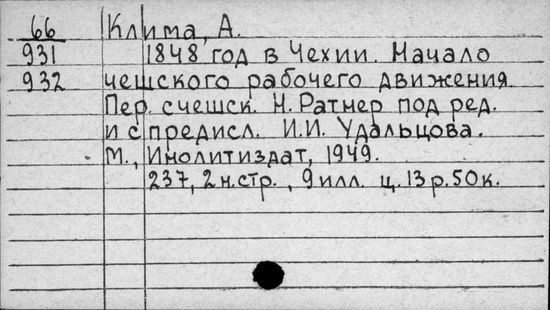 66 Клима, А.
931 1848 год в Чехии. Начало
932 чешского рабочего движения.
Пер. с чешск. Н. Ратнер под ред.
и с предисл. И.И. Удальцова.
М., Инолитиздат, 1949.
237, 2 н.стр., 9 илл. ц. 13 р. 50 к.